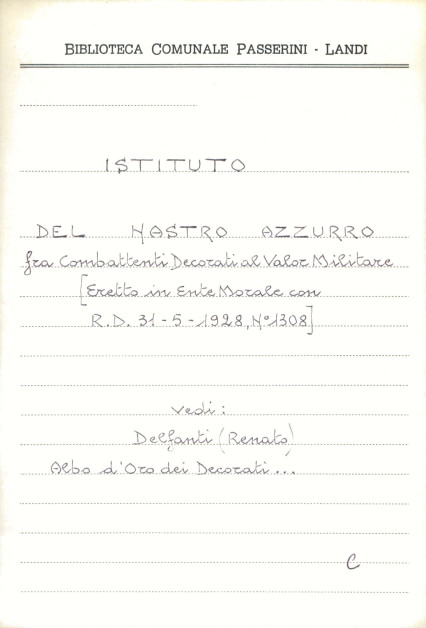 BIBLIOTECA COMUNALE PASSERINI - LANDI
ISTITUTO
DEL NASTRO AZZURRO
fra Combattenti Decorati al Valor Militare
[Eretto in Ente Morale con
R.D. 31-5-1928, N° 1308]
Vedi:
Delfanti (Renato)
Albo d'Oro dei Decorati...
C